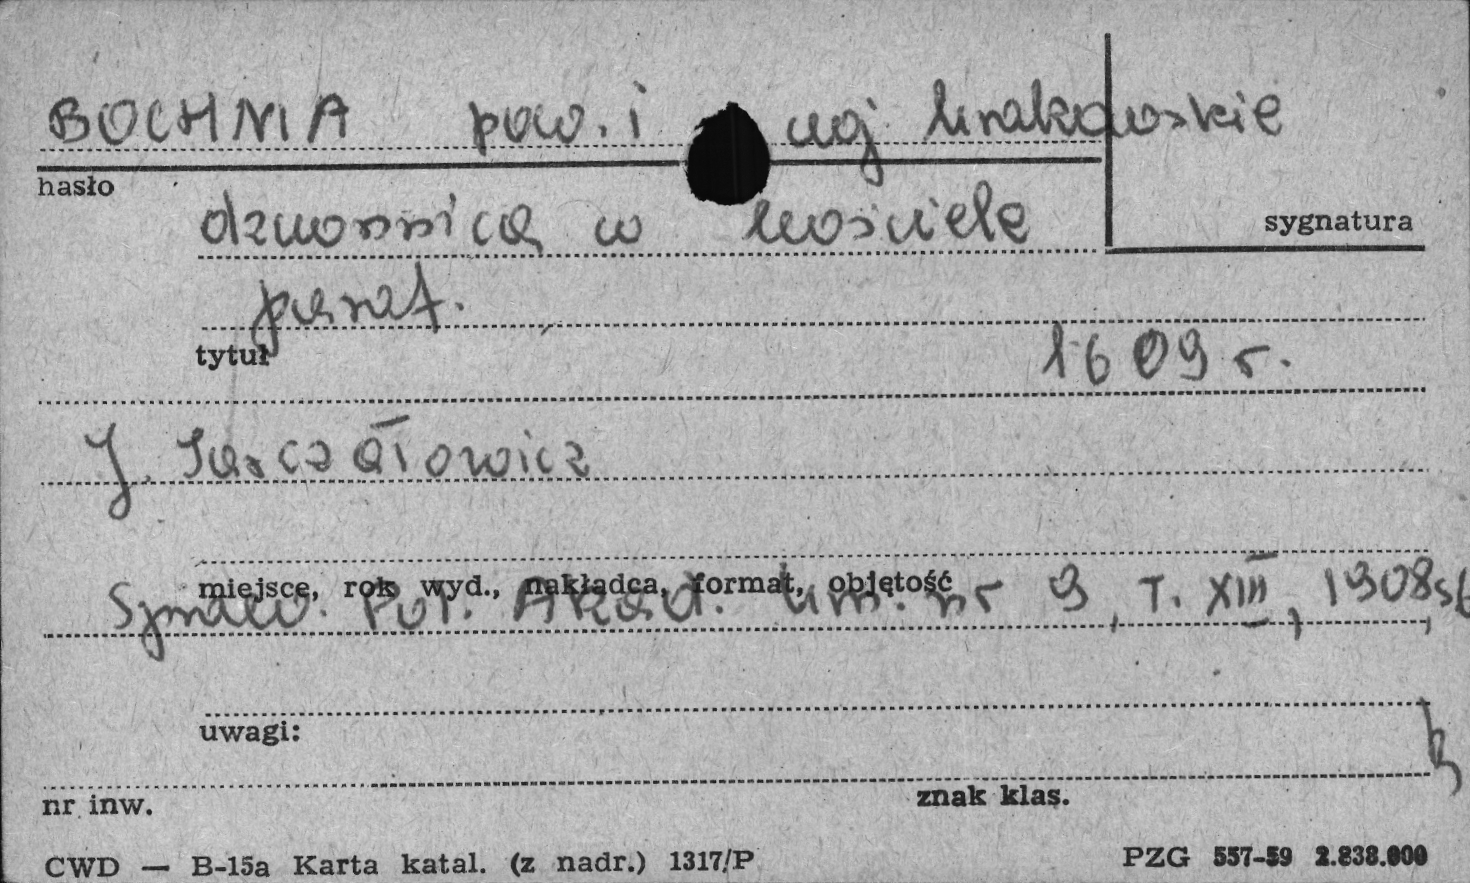 BOCHNIA pow. i woj. krakowskie
hasło
dzwonnica w kościele
sygnatura
paraf.
tytuł
1609 r.
J.
miejsce, rok wyd., nakładca, format, objętość
Spraw. Pol. Akad. Um. nr 9, T. XIII, 1908,
uwagi:
nr inw.
znak klas.
CWD — B-15a Karta katal. (z nadr.) 1317/P
PZG 557-59 2.838.000